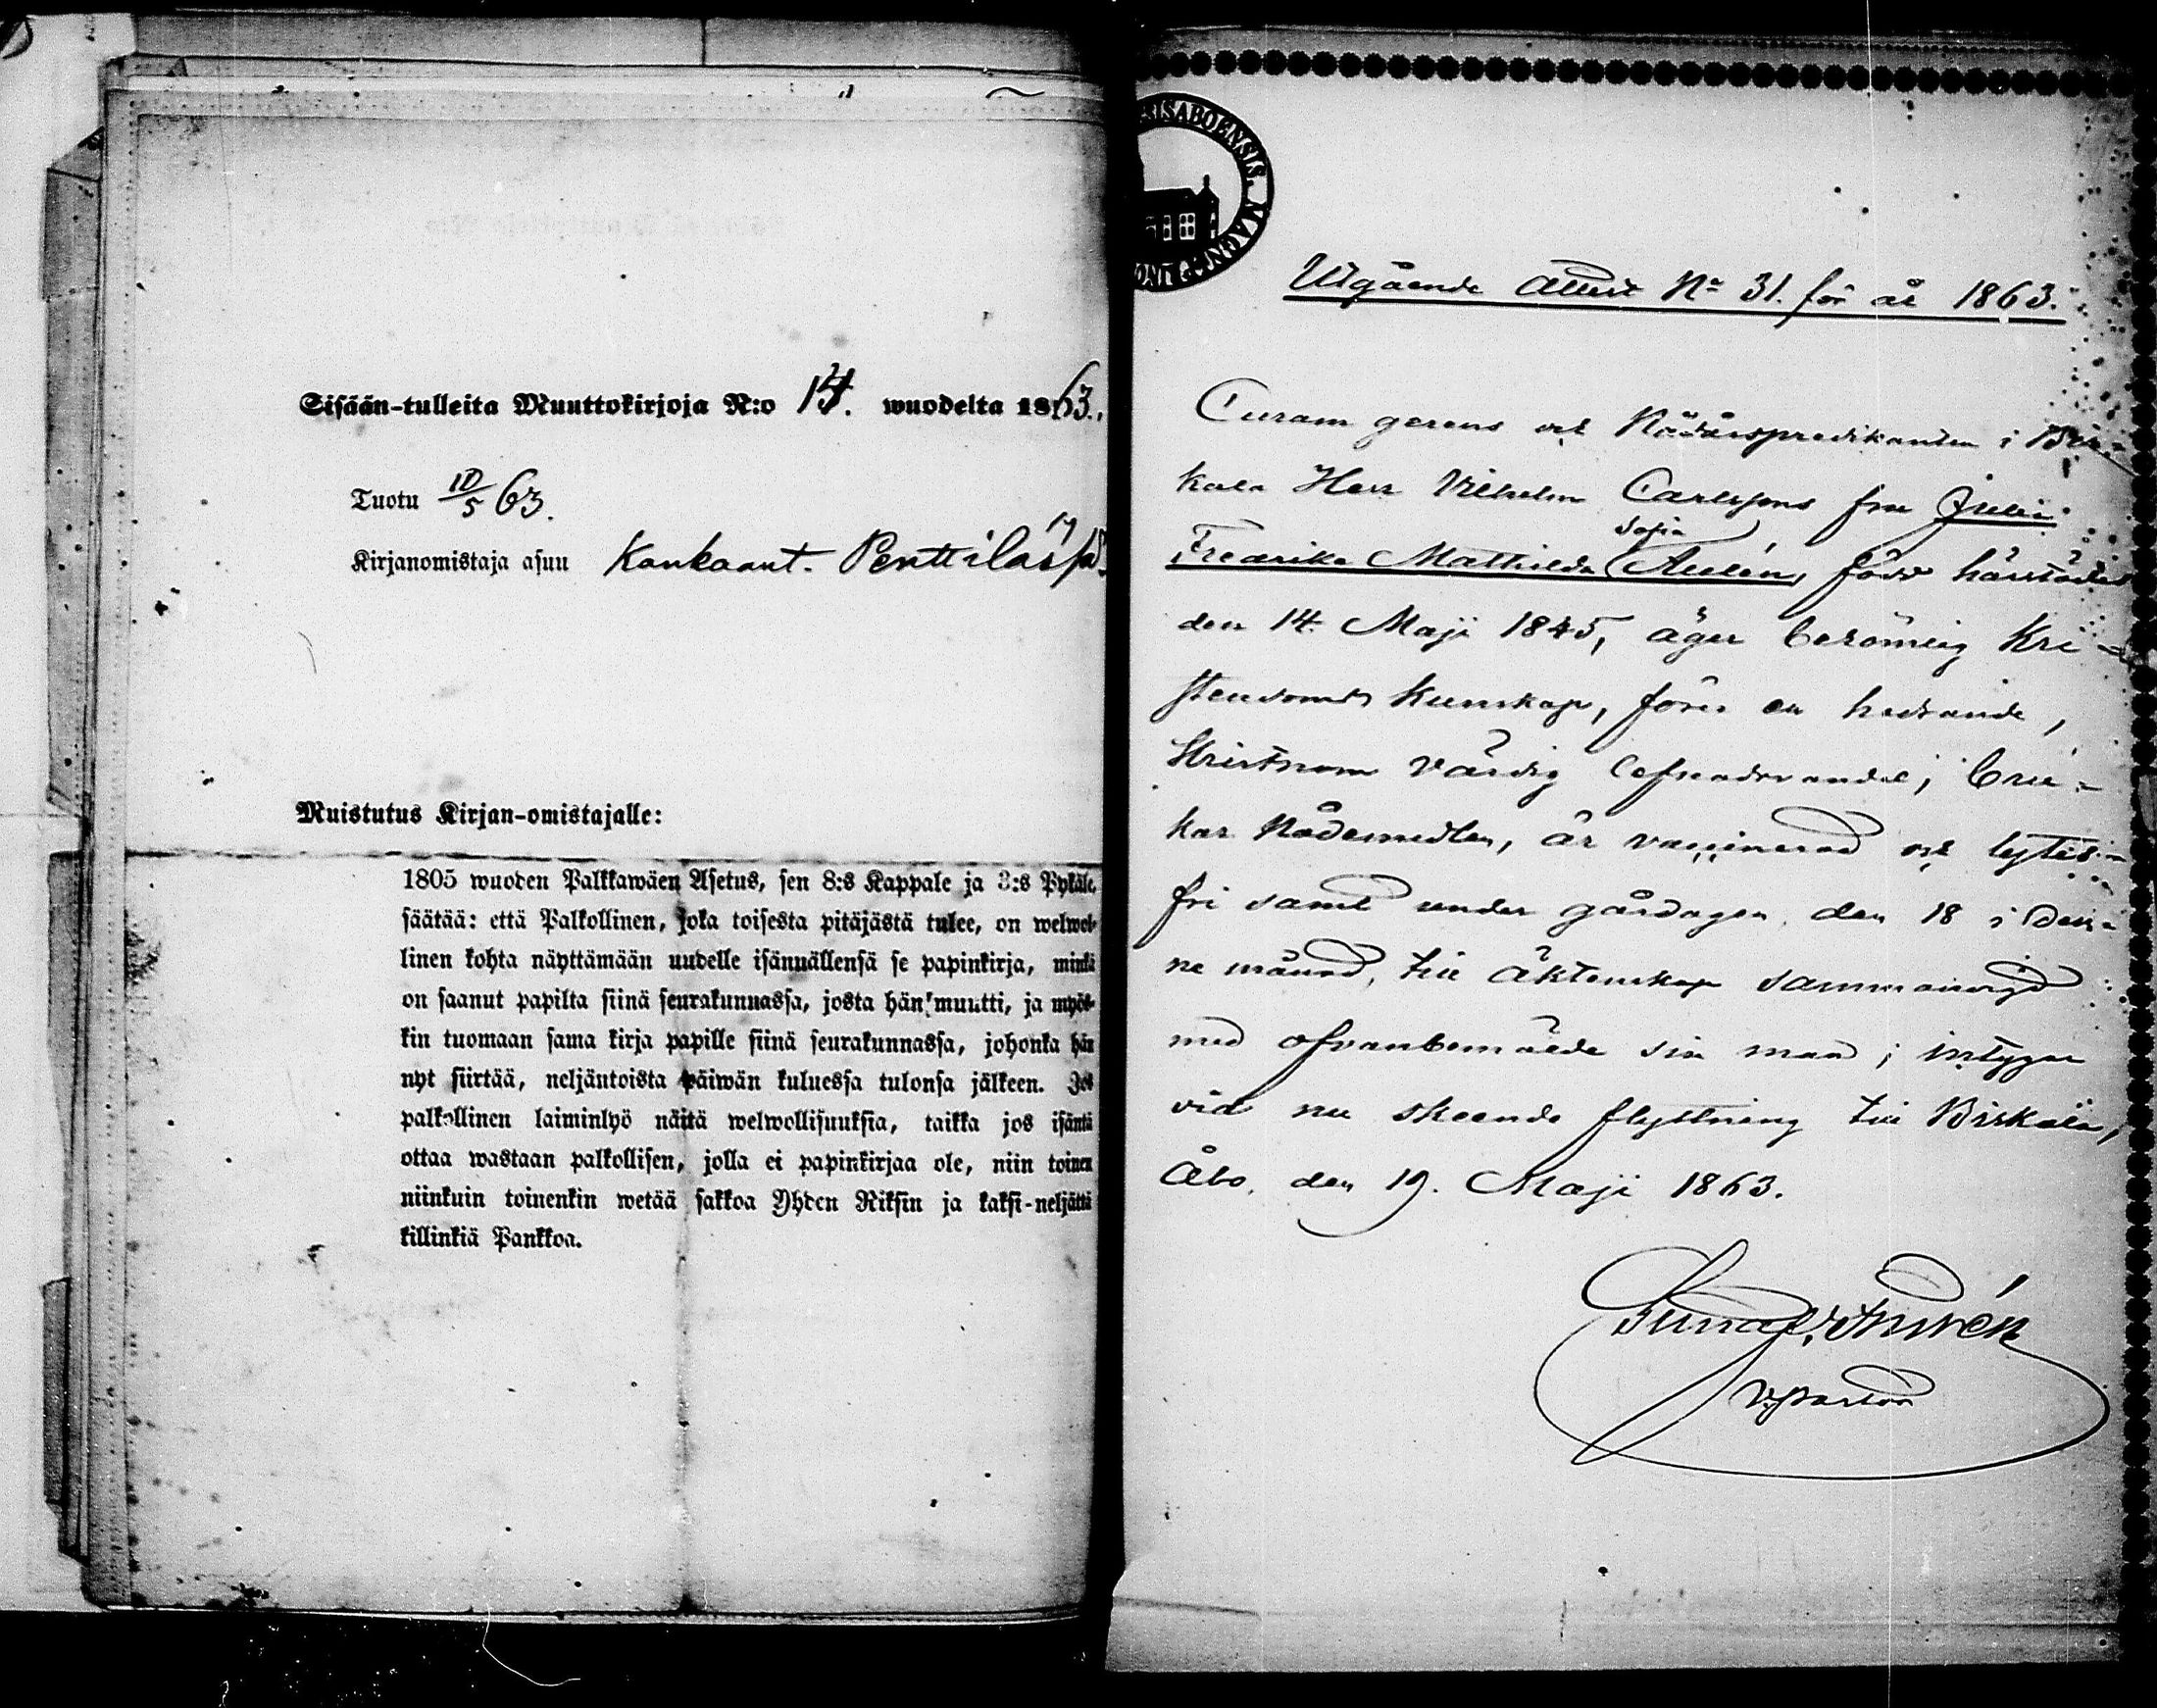 Sisään-tulleita Muuttokirjoja N:o 14. wuodelta 1863.
Tuotu 10/5 63.
Kirjanomistaja asuu Kankaant. Penttilä
Muistutus Kirjan-omistajalle:
1805 wuoden Palkkawäen Asetus, sen 8:s Kappale ja 3:s Pykäle,
säätää: että Palkollinen, joka toisesta pitäjästä tulee, on welwol-
linen kohta näyttämään uudelle isännällensä se papinkirja, minkä
on saanut papilta siinä seurakunnassa, josta hän muutti, ja myös-
kin tuomaan sama kirja papille siinä seurakunnassa, johonka hän
nyt siirtää, neljäntoista päiwän kuluessa tulonsa jälkeen. Jos
palkollinen laiminlyö näitä welwollisuuksia, taikka jos isäntä
ottaa wastaan palkollisen, jolla ei papinkirjaa ole, niin toinen
niinkuin toinenkin wetää sakkoa Yhden Riksin ja kaksi-neljättä
killinkiä Pankkoa.
SISABOENSIS. MAGN
Utgående Attest No 31. för år 1863.
Curam gerens och Nådårspredikanten i Bir-
kala Herr Vilhelm Carlssons fru Julia
Sofia
Fredrika Mathilda Aulén, född härstädes
den 14. Maji 1845, äger berömlig Kri-
stendoms kunskap, förer en hedrande,
Kristnom värdig lefnadsvandel, bru-
kar Nådemedlen, är vaccinerad och lytes-
fri samt under gårdagen den 18 i den-
ne månad, till äktenskap sammanvigd
med ofvanbemälde sin man; intygar
vid nu skeende flyttning till Birkala,
Åbo, den 19. Maji 1863.
v. pastor